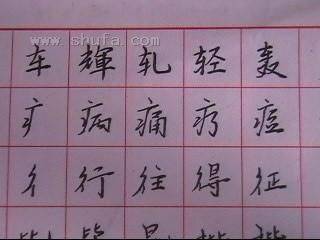 www.shufa.com
车 輝 轧 轻 轰
疒 病 痛 疠 痘
彳 行 往 得 征